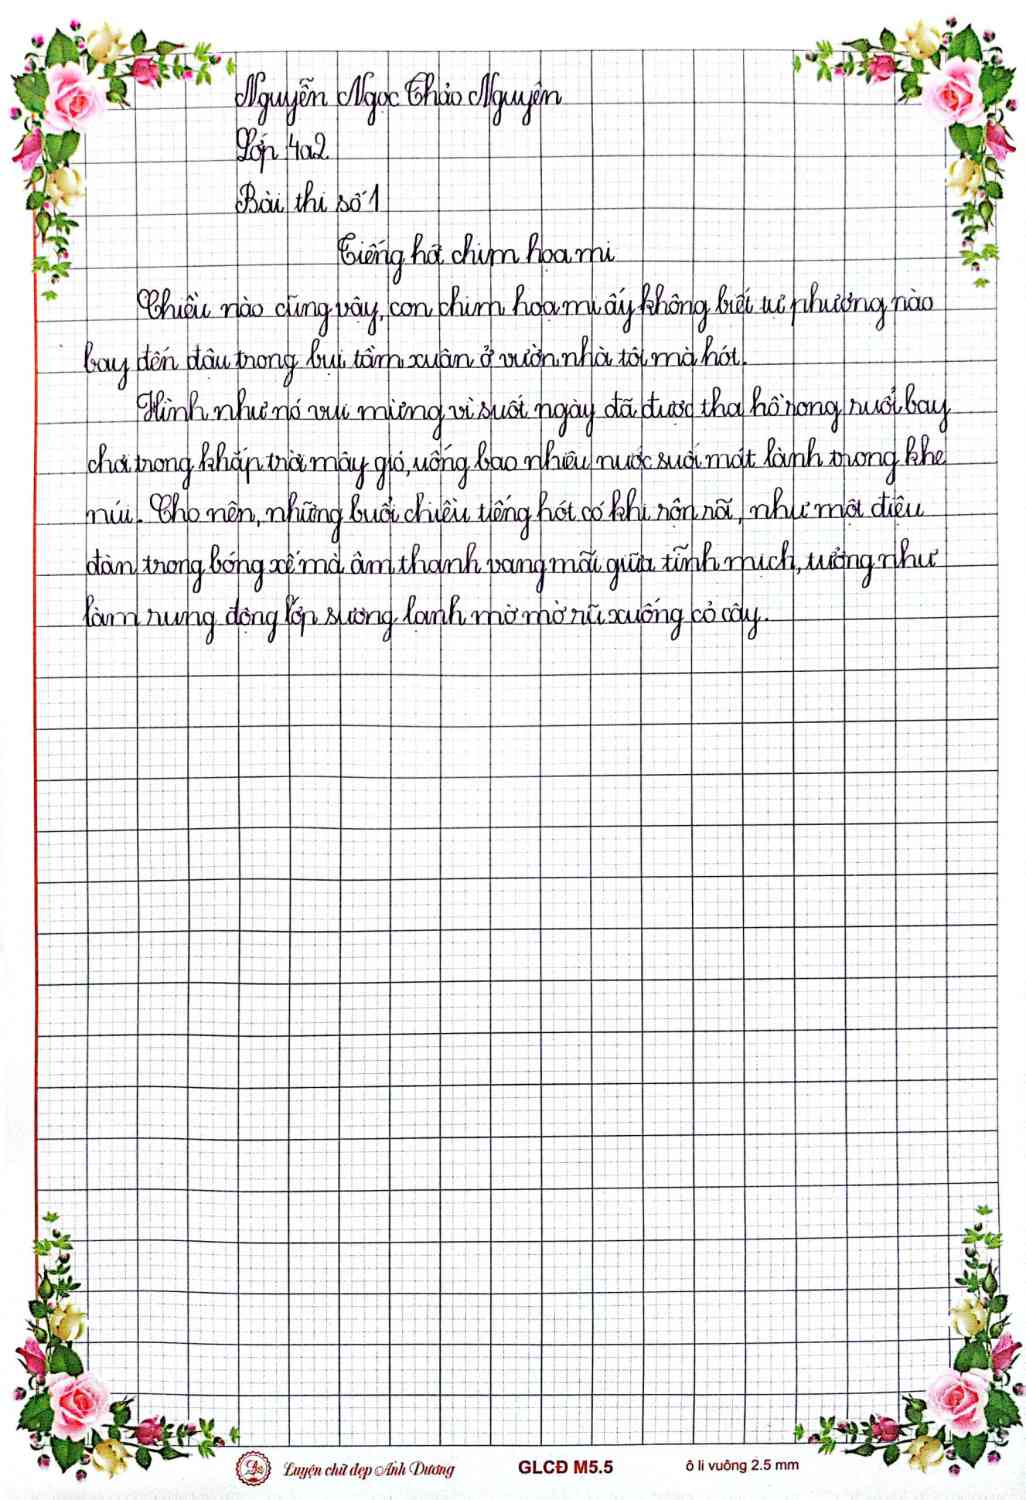 Nguyễn Ngọc Thảo Nguyên
Lớp 4a2
Bài thi số 1
Tiếng hót chim họa mi
Chiều nào cũng vậy, con chim họa mi ấy không biết từ phương nào
bay đến đậu trong bụi tầm xuân ở vườn nhà tôi mà hót.
Hình như nó vui mừng vì suốt ngày đã được tha hồ rong ruổi bay
chơi trong khắp trời mây gió, uống bao nhiêu nước suối mát lành trong khe
núi. Cho nên, những buổi chiều tiếng hót có khi rộn rã, như một điệu
đàn trong bóng xế mà âm thanh vang mãi giữa tĩnh mịch, tưởng như
làm rung động lớp sương lạnh mờ mờ rũ xuống cỏ cây.
Luyện chữ đẹp Ánh Dương
GLCĐ M5.5
ô li vuông 2.5 mm